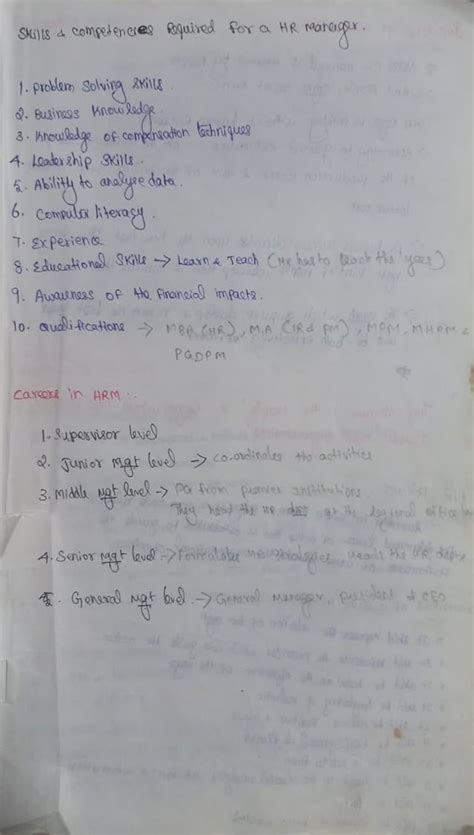 Skills & competencies Required for a HR Manager.
1. Problem Solving Skills.
2. Business Knowledge.
3. Knowledge of compensation techniques
4. Leadership Skills.
5. Ability to analyse data.
6. Computer literacy.
7. Experience
8. Educational Skills → Learn & Teach (He has to teach the
9. Awareness of the financial impacts.
10. Qualifications → MBA (HR), M.A (IR & PM), MPM, MHRM &
PGDPM
Careers in HRM :-
1. Supervisor level
2. Junior Mgt level → co.ordinates the activities
3. Middle Mgt level → PG from premier institutions
They head the HR dept at the regional office
4. Senior Mgt level → Formulate HR strategies heads the HR dept
5. General Mgt level. → General Manager, president & CEO